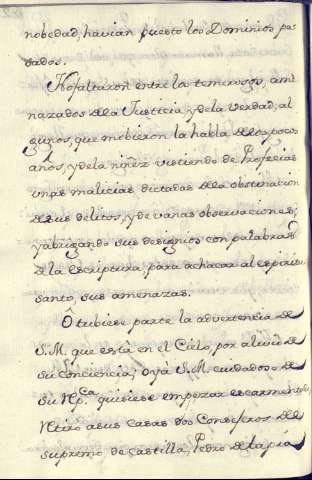 nobedad, havian puesto los Dominios pa-
sados.
No faltaron entre la temerosos, ame
nazados de la Justicia, y de la verdad, al
gunos, que mobieron la habla de los pocos
años, y de la niñez vistiendo de Profecias
unas malicias dictadas de la obstinacion
de sus delitos, y de vanas observaciones;
y abrigando sus designios con palabras
de la escriptura, para achacar al espiritu
santo, sus amenazas.
Ô tubiese parte la advertencia de
S.M. que está en el Cielo, por alivio de
su conciencia; o ya S.M. cuidadoso de
su Rpca. quisiese empezar escarmentos,
Retiró a sus casas dos Consejeros de
supremo de Castilla, Pedro de tapia